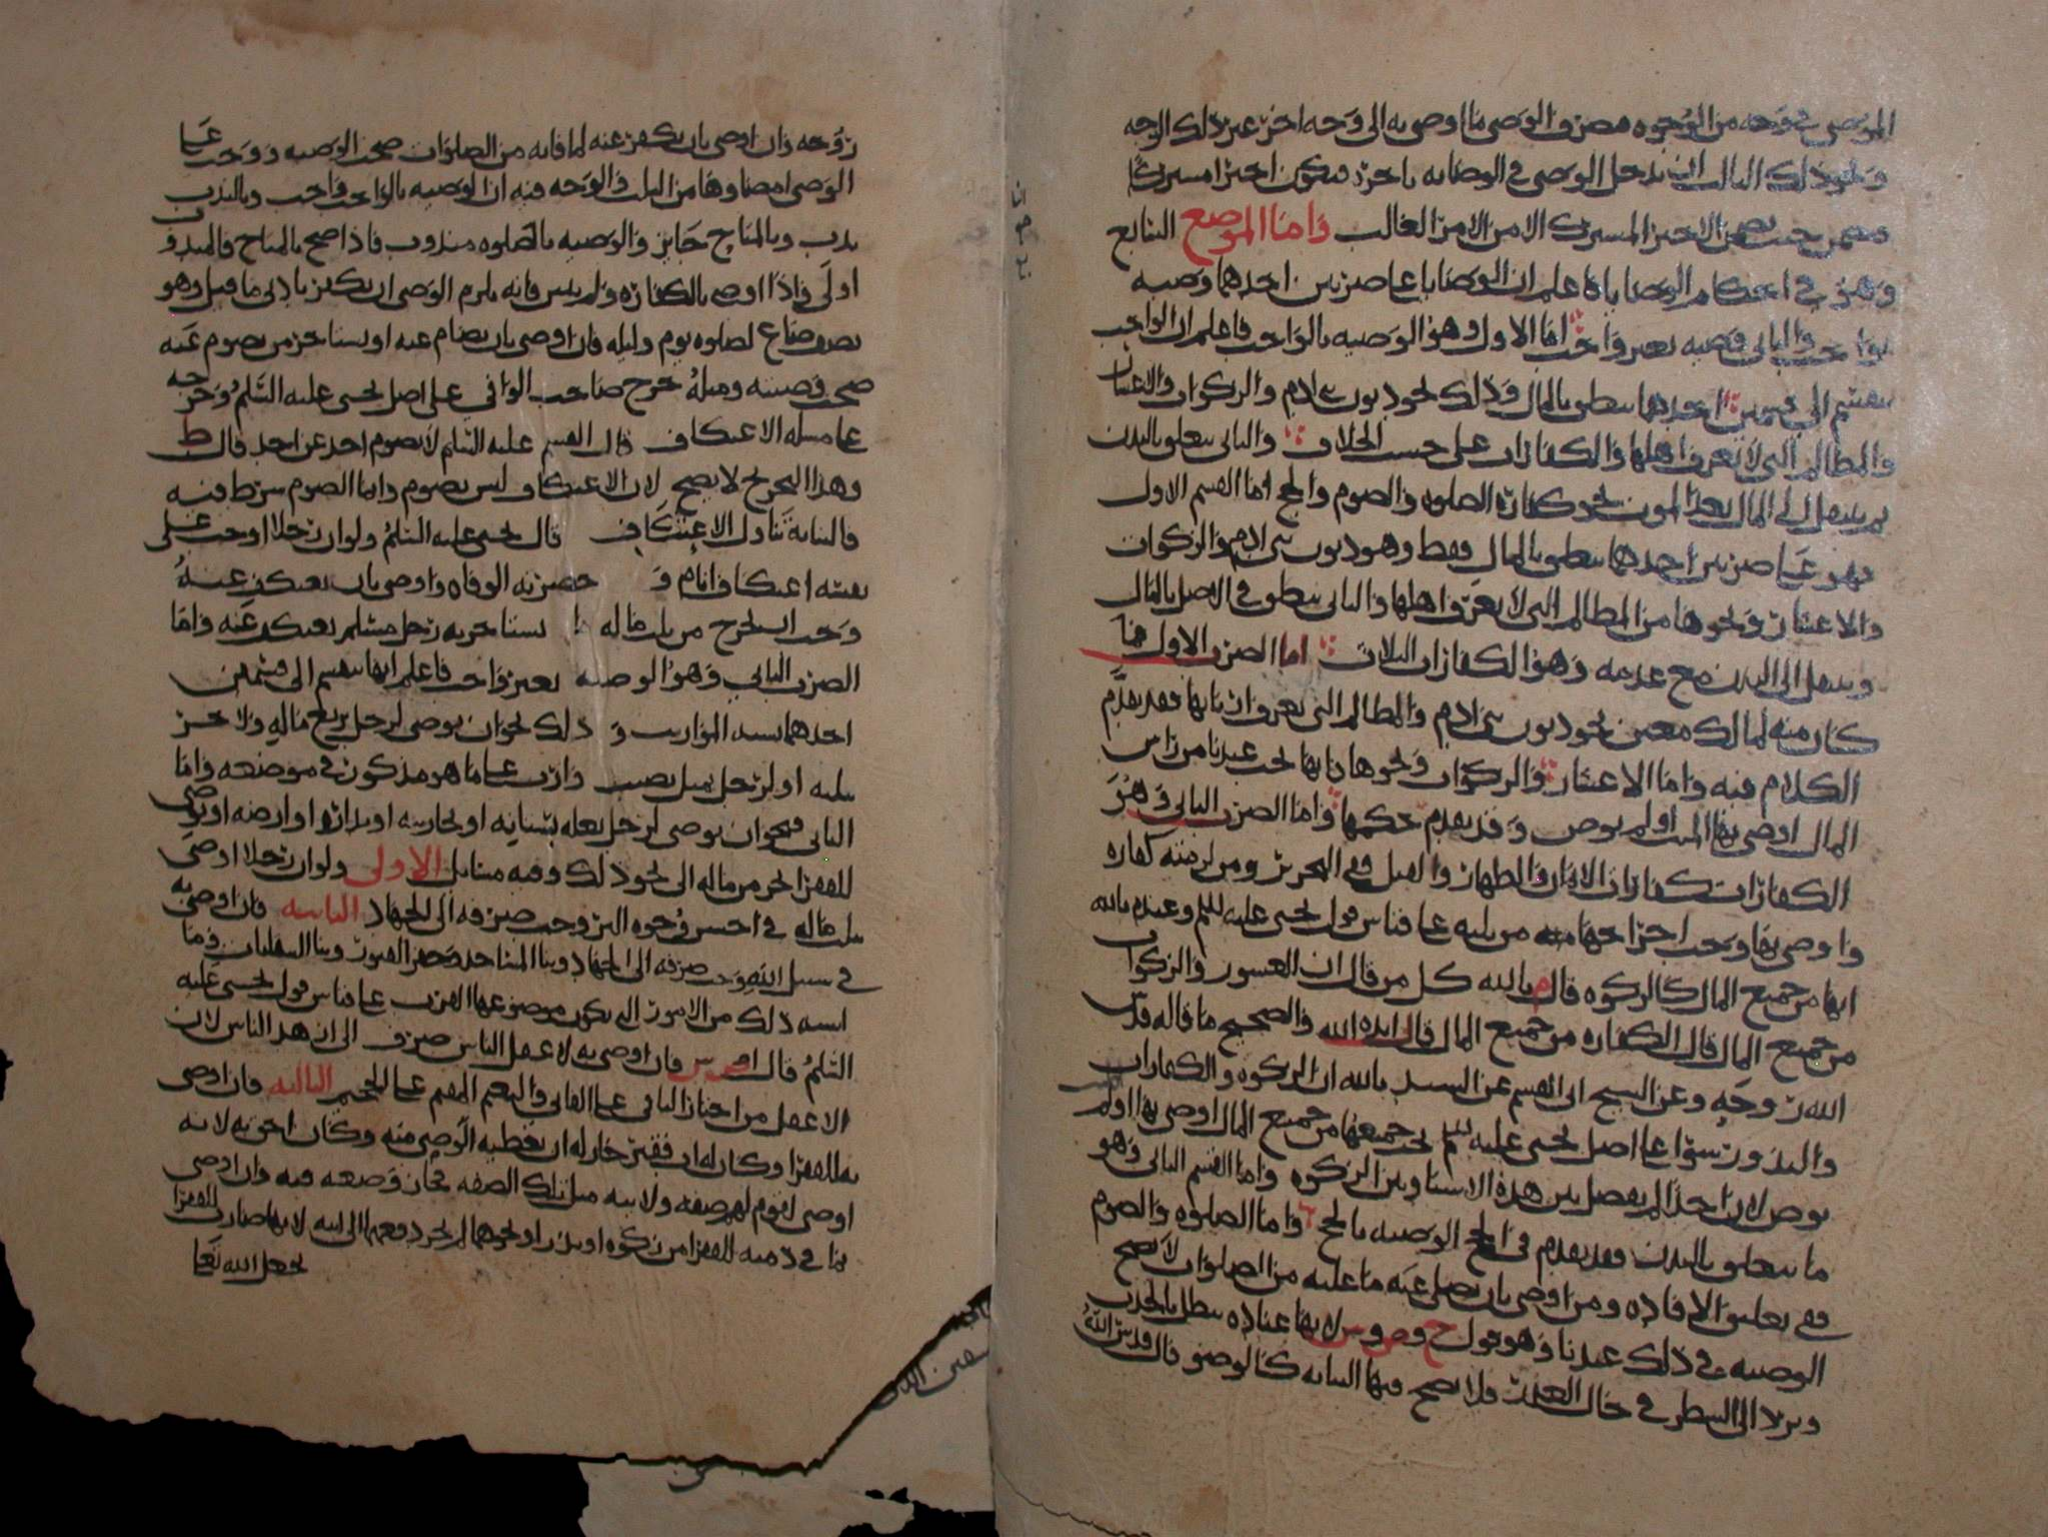 الموصي في وجه من الوجوه فصرف الوصي ما اوصى به الى وجه اخر غير ذلك الوجه
ونحو ذلك الثالث ان يدخل الوصي في الوصايه باجره فيكون اجيرا مشتركا
فيضمن حيث يضمن الاجير المشترك الا من الامر الغالب واما الموضع التابع
وهو في احكام الوصايا فاعلم ان الوصايا على ضربين احدهما وصيه
بواجب والثاني وصيه بغير واجب اما الاول وهو الوصيه بالواجب فاعلم ان الواجب
ينقسم الى قسمين احدهما يتعلق بالمال وذلك نحو ديون بني ادم والزكوات والاعشار
والمظالم التي لا يعرف اهلها والكفارات على حسب الخلاف والثاني يتعلق بالبدن
ثم ينتقل الى المال بعد الموت نحو كفارة الصلوه والصوم والحج اما القسم الاول
فهو على ضربين احدهما يتعلق بالمال فقط وهو ديون بني ادم والزكوات
والاعشار ونحوها من المظالم التي لا يعرف اهلها والثاني يتعلق في الاصل بالمال
وينتقل الى البدن مع عدمه وهو الكفارات الثلاث اما الضرب الاول فما
كان منه لمالك معين نحو ديون بني ادم والمظالم التي يعرف اربابها فقد تقدم
الكلام فيه واما الاعشار والزكوات ونحوها فانها تجب عندنا من راس
المال اوصى بها الميت او لم يوص وقد تقدم حكمها واما الضرب الثاني وهو
الكفارات كفارات الايمان والظهار والقتل ففي التحرير ومن لزمته كفاره
واوصى بها وجب اخراجها من ثلثه على قياس قول يحيى عليه السلم وعند م بالله
انها من جميع المال كالزكوه قال م بالله كل من قال ان العشور والزكوات
من جميع المال قال الكفاره من جميع المال قال ايده الله والصحيح ما قاله قدس
الله روحه وعن الشيخ ابى القسم عن السيد م بالله ان الزكوه والكفارات
والنذور سوا على اصل يحيى عليه السلم تجب جميعها من جميع المال اوصى بها او لم
يوص لان احدا لم يفصل بين هذه الاشيا وبين الزكوه واما القسم الثاني وهو
ما يتعلق بالبدن فقد تقدم في الحج الوصيه بالحج واما الصلوه والصوم
ففي تعليق الافاده ومن اوصى بان يصلى عنه ما عليه من الصلوات لا تصح
الوصيه في ذلك عندنا وهو قول ح وص وش لانها عباده تبطل بالحدث
وترد الى الشطر في حال العذر فلا تصح فيها النيابه كالوضو قال قدس الله
روحه وان اوصى بان يكفر عنه لما فاته من الصلوات صحت الوصيه ووجب على
الوصي امضاوها من الثلث والوجه فيه ان الوصيه بالواجب واجب وبالندب
ندب وبالمباح جايز والوصيه بالصلوه مندوب فاذا صح بالمباح فالمندوب
اولى واذا اوصى بالكفاره ولم يبين فانه يلزم الوصي ان يكفر بادنى ما قيل وهو
نصف صاع لصلوه يوم وليله فان اوصى بان يصام عنه او يستاجر من يصوم عنه
صحت وصيته ومثله خرج صاحب الوافي على اصل يحيى عليه السلم وخرجه
على مسله الاعتكاف قال القسم عليه السلم لا يصوم احد عن احد قال ط
وهذا التخريج لا يصح لان الاعتكاف ليس بصوم وانما الصوم شرط فيه
فالنيابة تناول الاعتكاف قال يحيى عليه السلم ولو ان رجلا اوجب على
نفسه اعتكاف ايام و حضرته الوفاه واوصى بان يعتكف عنه
وجب ان يخرج من ثلث ماله ما يستاجر به رجل مسلم يعتكف عنه واما
الضرب الثاني وهو الوصيه بغير واجب فاعلم انها تنقسم الى قسمين
احدهما يشبه المواريث و ذلك نحو ان يوصى لرجل بربع ماله ولاخر
بثلثه او لرجل بمثل نصيب وارث على ما هو مذكور في موضعه واما
الثاني فنحو ان يوصى لرجل بغله بستانه او بجاريه او بدار او ارضه او يوصى
للفقرا بجز من ماله الى نحو ذلك وفيه مسايل الاولى ولو ان رجلا اوصى
بثلث ماله في احسن وجوه البر وجب صرفه الى الجهاد الثانيه فان اوصى به
في سبيل الله وجب صرفه الى الجهاد وبنا المساجد وحفر القبور وبنا السقايات وما
اشبه ذلك من الامور التي يكون موضوعها القرب على قياس قول يحيى عليه
السلم قال ص وش فان اوصى به لاعقل الناس صرف الى ازهد الناس لان
الاعقل من اختار الباقي على الفاني والنعيم المقيم على الجحيم الثالثه فان اوصى
به للفقرا وكان له اب فقير جاز له ان يعطيه الوصي منه وكان احق به لانه
اوصى لقوم لهم صفه ولابيه مثل تلك الصفه فجاز وضعه فيه وان اوصى
بما في ذمته للفقرا من زكوه او نذر او نحوهما لم يجز دفعها الى ابيه لانها صارت للفقرا
بجعل الله تعالى